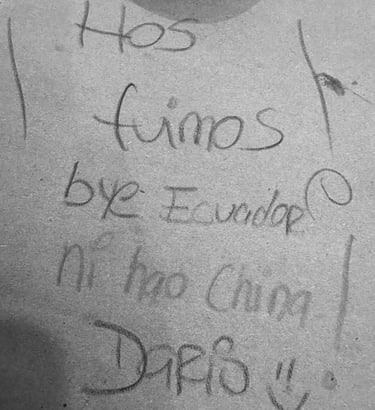 Hos
fuimos
bye Ecuador
ni hao China!
DaRis !!